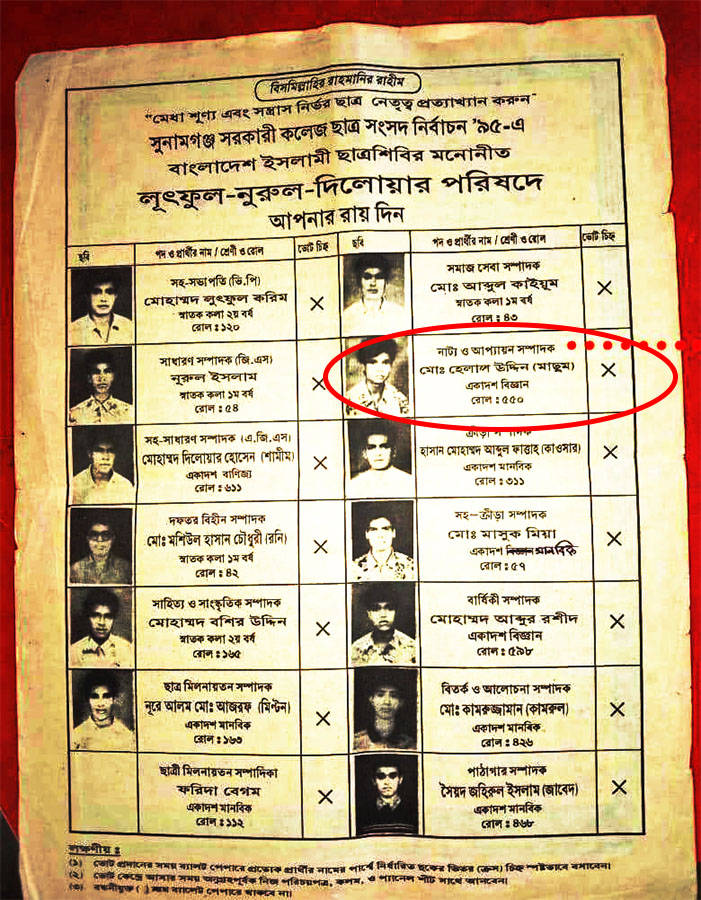 বিসমিল্লাহির রাহমানির রাহীম
"মেধা শূণ্য এবং সন্ত্রাস নির্ভর ছাত্র নেতৃত্ব প্রত্যাখ্যান করুন"
সুনামগঞ্জ সরকারী কলেজ ছাত্র সংসদ নির্বাচন '৯৫-এ
বাংলাদেশ ইসলামী ছাত্রশিবির মনোনীত
লূৎফুল-নুরুল-দিলোয়ার পরিষদে
আপনার রায় দিন
ছবি
পদ ও প্রার্থীর নাম / শ্রেণী ও রোল
ভোট চিহ্ন
সহ-সভাপতি (ভি.পি)
মোহাম্মদ লুৎফুল করিম
স্নাতক কলা ২য় বর্ষ
রোল : ১২০
সাধারণ সম্পাদক (জি.এস)
নুরুল ইসলাম
স্নাতক কলা ১ম বর্ষ
রোল : ৫৪
সহ-সাধারণ সম্পাদক (এ.জি.এস)
মোহাম্মদ দিলোয়ার হোসেন (শামীম)
একাদশ বাণিজ্য
রোল : ৬১১
দফতর বিহীন সম্পাদক
মোঃ মশিউল হাসান চৌধুরী (রনি)
স্নাতক কলা ১ম বর্ষ
রোল : ৪২
সাহিত্য ও সাংস্কৃতিক সম্পাদক
মোহাম্মদ বশির উদ্দিন
স্নাতক কলা ২য় বর্ষ
রোল : ১৬৫
ছাত্র মিলনায়তন সম্পাদক
নূরে আলম মোঃ আজরফ (মিন্টন)
একাদশ মানবিক
রোল : ১৬৩
ছাত্রী মিলনায়তন সম্পাদিকা
ফরিদা বেগম
একাদশ মানবিক
রোল : ১১২
ছবি
পদ ও প্রার্থীর নাম / শ্রেণী ও রোল
ভোট চিহ্ন
সমাজ সেবা সম্পাদক
মোঃ আব্দুল কাইয়ূম
স্নাতক কলা ১ম বর্ষ
রোল : ৪৩
নাট্য ও আপ্যায়ন সম্পাদক
মোঃ হেলাল উদ্দিন (মাছুম)
একাদশ বিজ্ঞান
রোল : ৫৫০
ক্রীড়া সম্পাদক
হাসান মোহাম্মদ আব্দুল ফাত্তাহ (কাওসার)
একাদশ মানবিক
রোল : ৩১১
সহ-ক্রীড়া সম্পাদক
মোঃ মাসুক মিয়া
একাদশ বিজ্ঞান মানবিক
রোল : ৫৭
বার্ষিকী সম্পাদক
মোহাম্মদ আব্দুর রশীদ
একাদশ বিজ্ঞান
রোল : ৫৯৮
বিতর্ক ও আলোচনা সম্পাদক
মোঃ কামরুজ্জামান (কামরুল)
একাদশ মানবিক
রোল : ৪২৬
পাঠাগার সম্পাদক
সৈয়দ জহিরুল ইসলাম (জাবেদ)
একাদশ মানবিক
রোল : ৪৬৮
লক্ষণীয় :
(১) ভোট প্রদানের সময় ব্যালট পেপারে প্রত্যেক প্রার্থীর নামের পার্শ্বে নির্ধারিত ছকের ভিতর (ক্রস) চিহ্ন স্পষ্টভাবে বসাবেন।
(২) ভোট কেন্দ্রে আসার সময় অনুগ্রহপূর্বক নিজ পরিচয়পত্র, কলম, ও প্যানেল শীট সাথে আনবেন।
(৩) বন্ধনীযুক্ত ( ) নাম ব্যালট পেপারে থাকবে না।